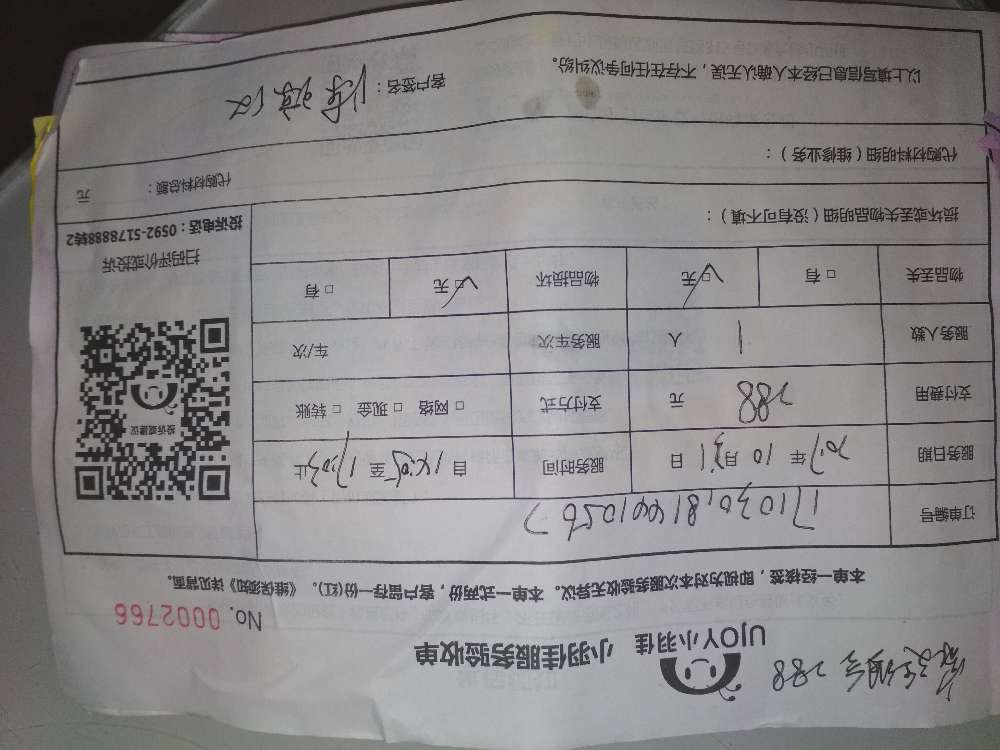 288
UJOY小羽佳 小羽佳服务验收单
No. 0002766
本单一经核签，即视为对本次服务验收无异议。本单一式两份，客户留存一份(红)。《维保须知》详见背面。
订单编号
服务日期 2017年10月31日 服务时间 自 至 止
支付费用 288 元 支付方式 □ 网络 □ 现金 □ 转账
投诉或建议
服务人数 1 人 服务车次 车/次
物品丢失 □ 有 □ 无 物品损坏 □ 无 □ 有
扫码评价或投诉
投诉电话：0592-5178888转2
损坏或丢失物品明细（没有可不填）：
代购材料明细（维修业务）：
代购材料总额： 元
以上填写信息已经本人确认无误，不存在任何争议纠纷。
客户签名：